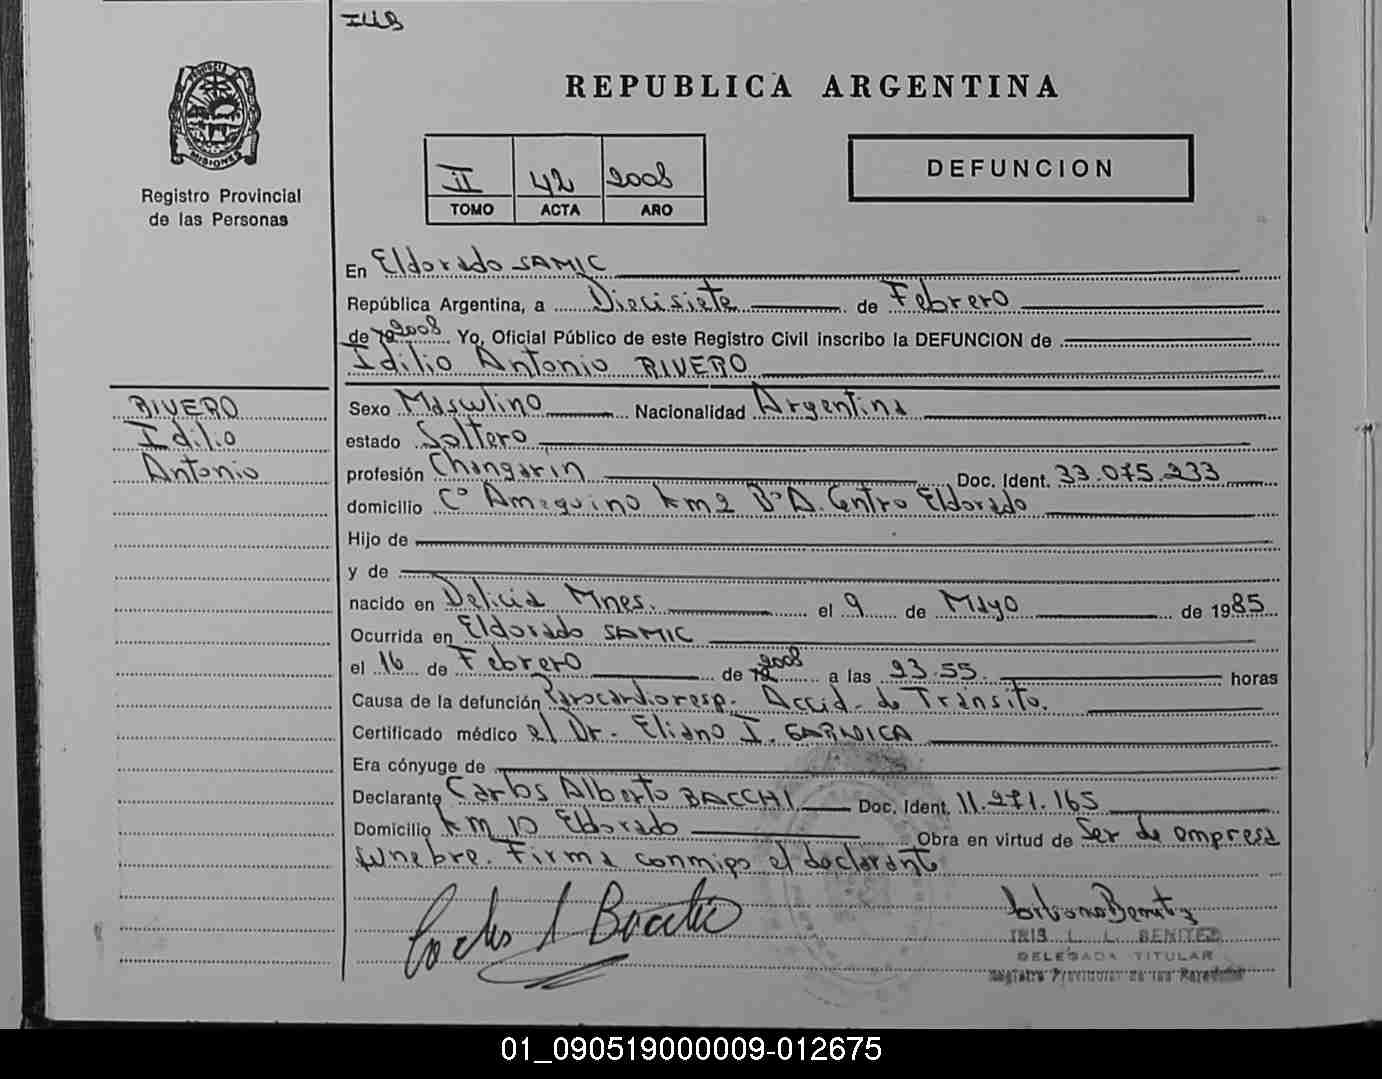 REPUBLICA ARGENTINA
MISIONES
Registro Provincial
de las Personas
II 42 2008
TOMO ACTA AÑO
DEFUNCION
En Eldorado SAMIC
República Argentina, a Diecisiete de Febrero
de 19 2008 Yo, Oficial Público de este Registro Civil inscribo la DEFUNCION de
Idilio Antonio RIVERO
RIVERO
Idilio
Antonio
Sexo Masculino Nacionalidad Argentina
estado Soltero
profesión Changarin Doc. Ident. 33.075.233
domicilio Cº Ameguino km 2 Bº A. Centro Eldorado
Hijo de
y de
nacido en Delicia Mnes. el 9 de Mayo de 1985
Ocurrida en Eldorado SAMIC
el 16 de Febrero de 19 2008 a las 23.55 horas
Causa de la defunción Parocardioresp. Accid. de Tránsito.
Certificado médico el Dr. Eliano I.
Era cónyuge de
Declarante Carlos Alberto BACCHI Doc. Ident. 11.271.165
Domicilio km 10 Eldorado Obra en virtud de Ser de empresa
funebre. Firma conmigo el declarante
IRIS L. L. BENITEZ
DELEGADA TITULAR
Registro Provincial de las Personas
01_090519000009-012675